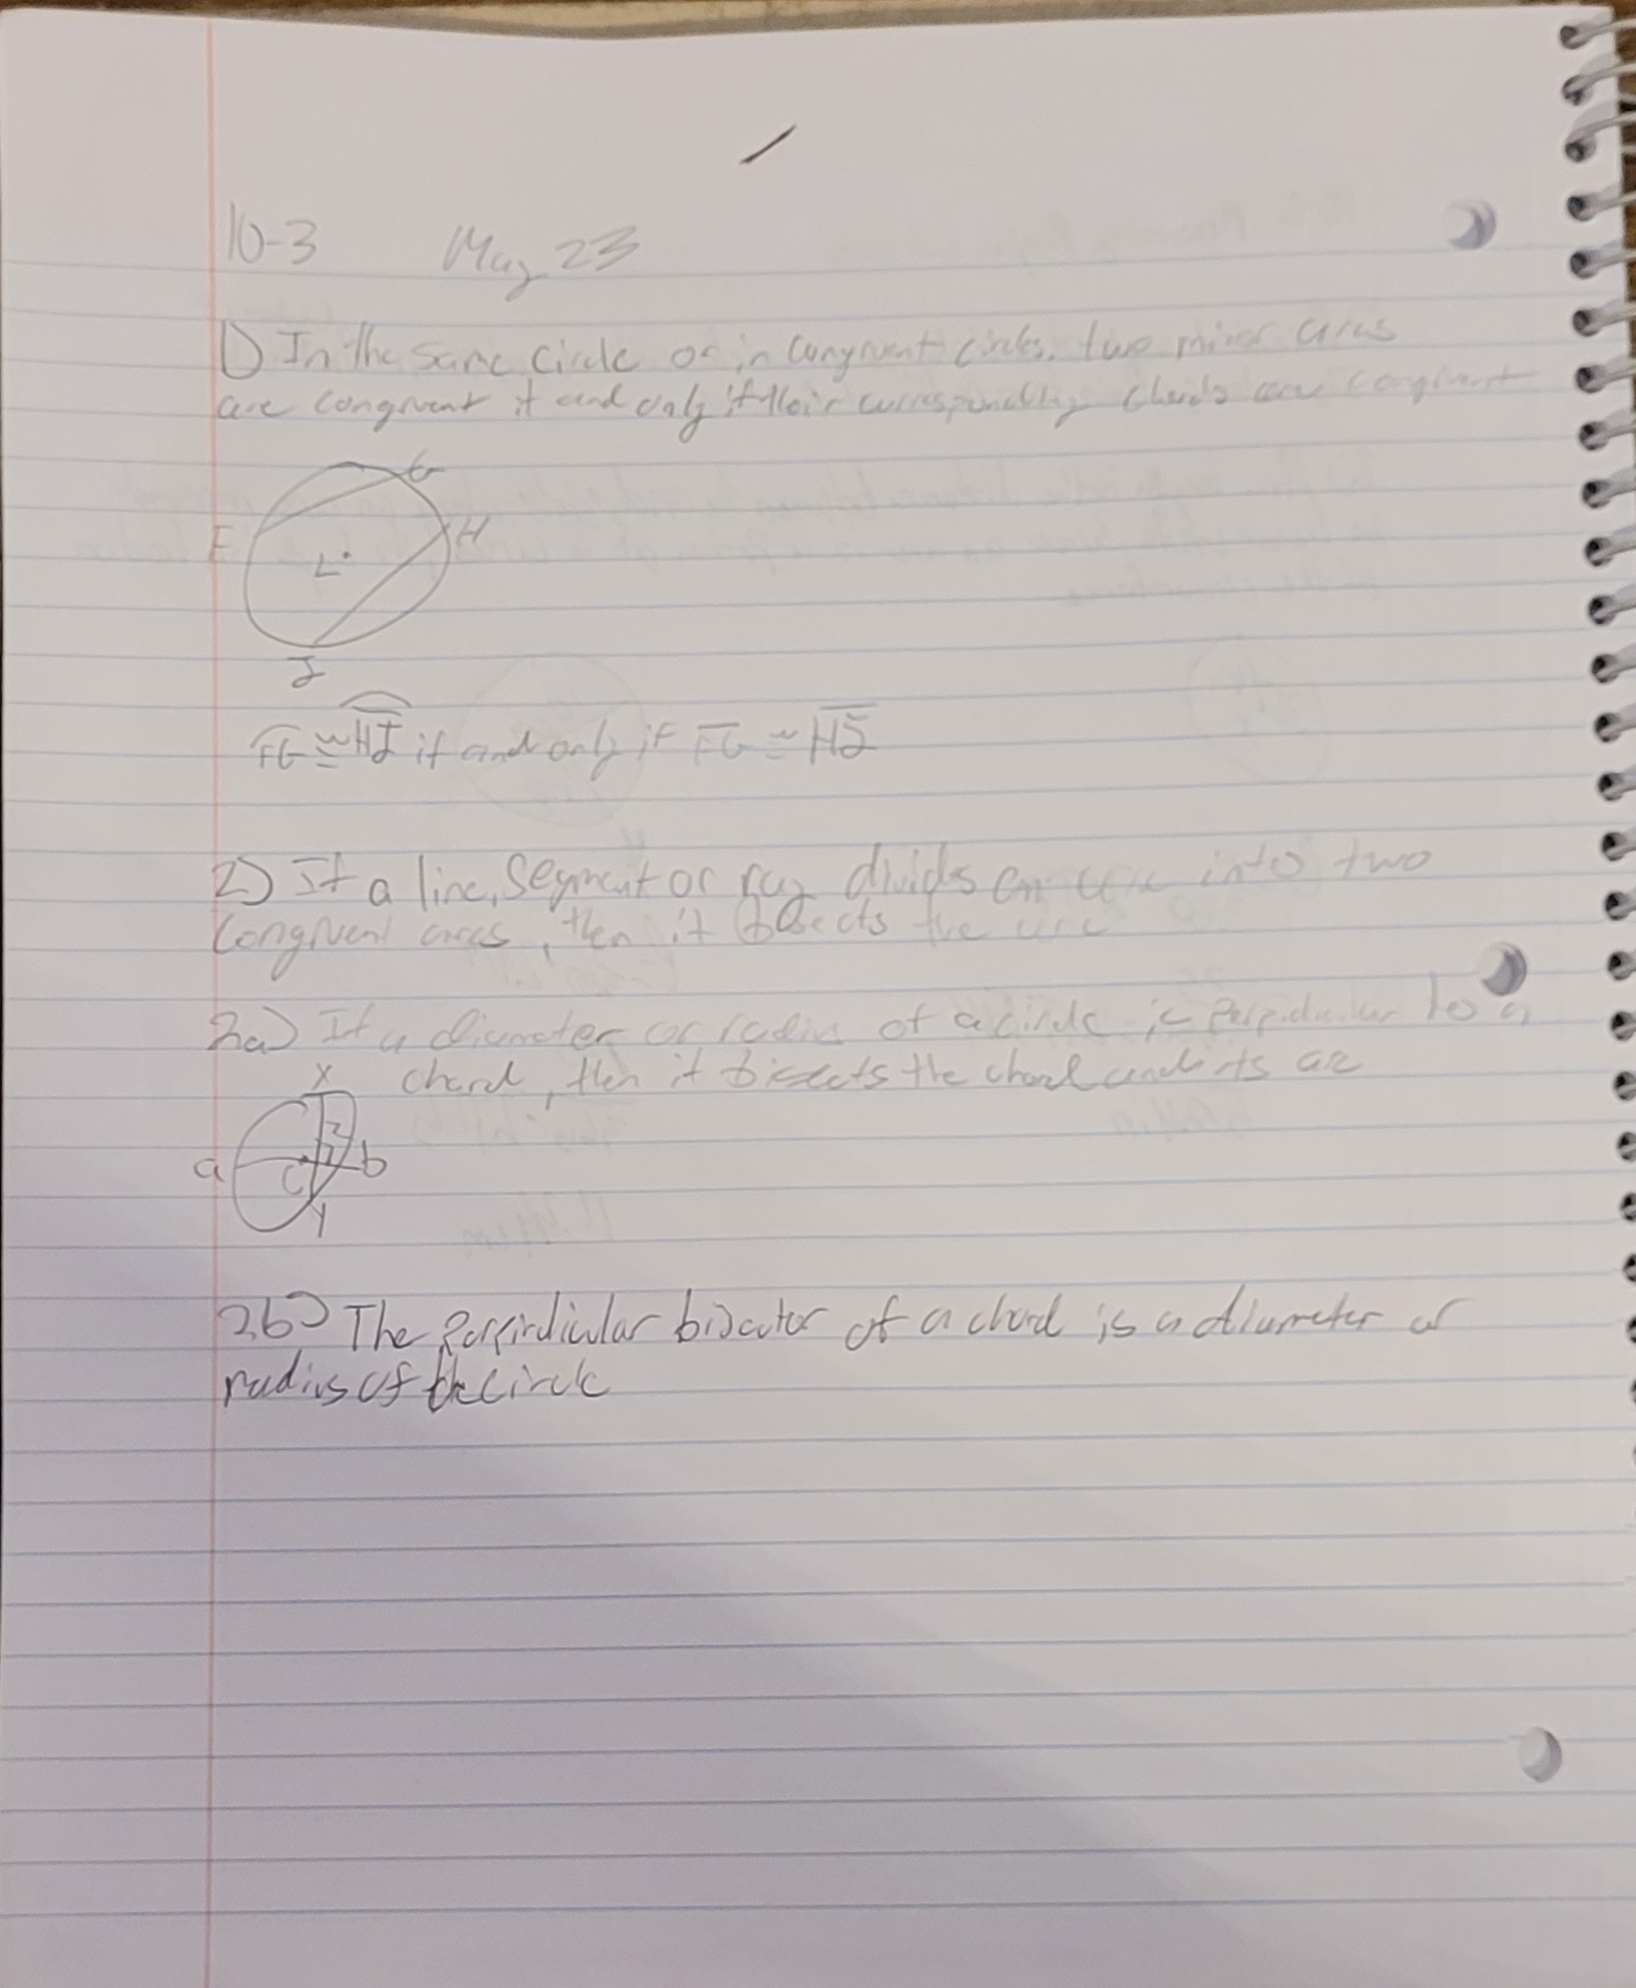 10-3 May 23
1) In the same circle or in congruent circles, two minor arcs
are congruent if and only if their corresponding chords are congruent
G
F
H
L
J
FG ≅ HJ if and only if FG ≅ HJ
2) If a line, segment or ray divides an arc into two
congruent arcs, then it bisects the arc
2a) If a diameter or radius of a circle is perpidicular to a
chord, then it bisects the chord and its arc
X
Z
a
C
b
Y
2b) The perpindicular bisector of a chord is a diameter or
radius of the circle